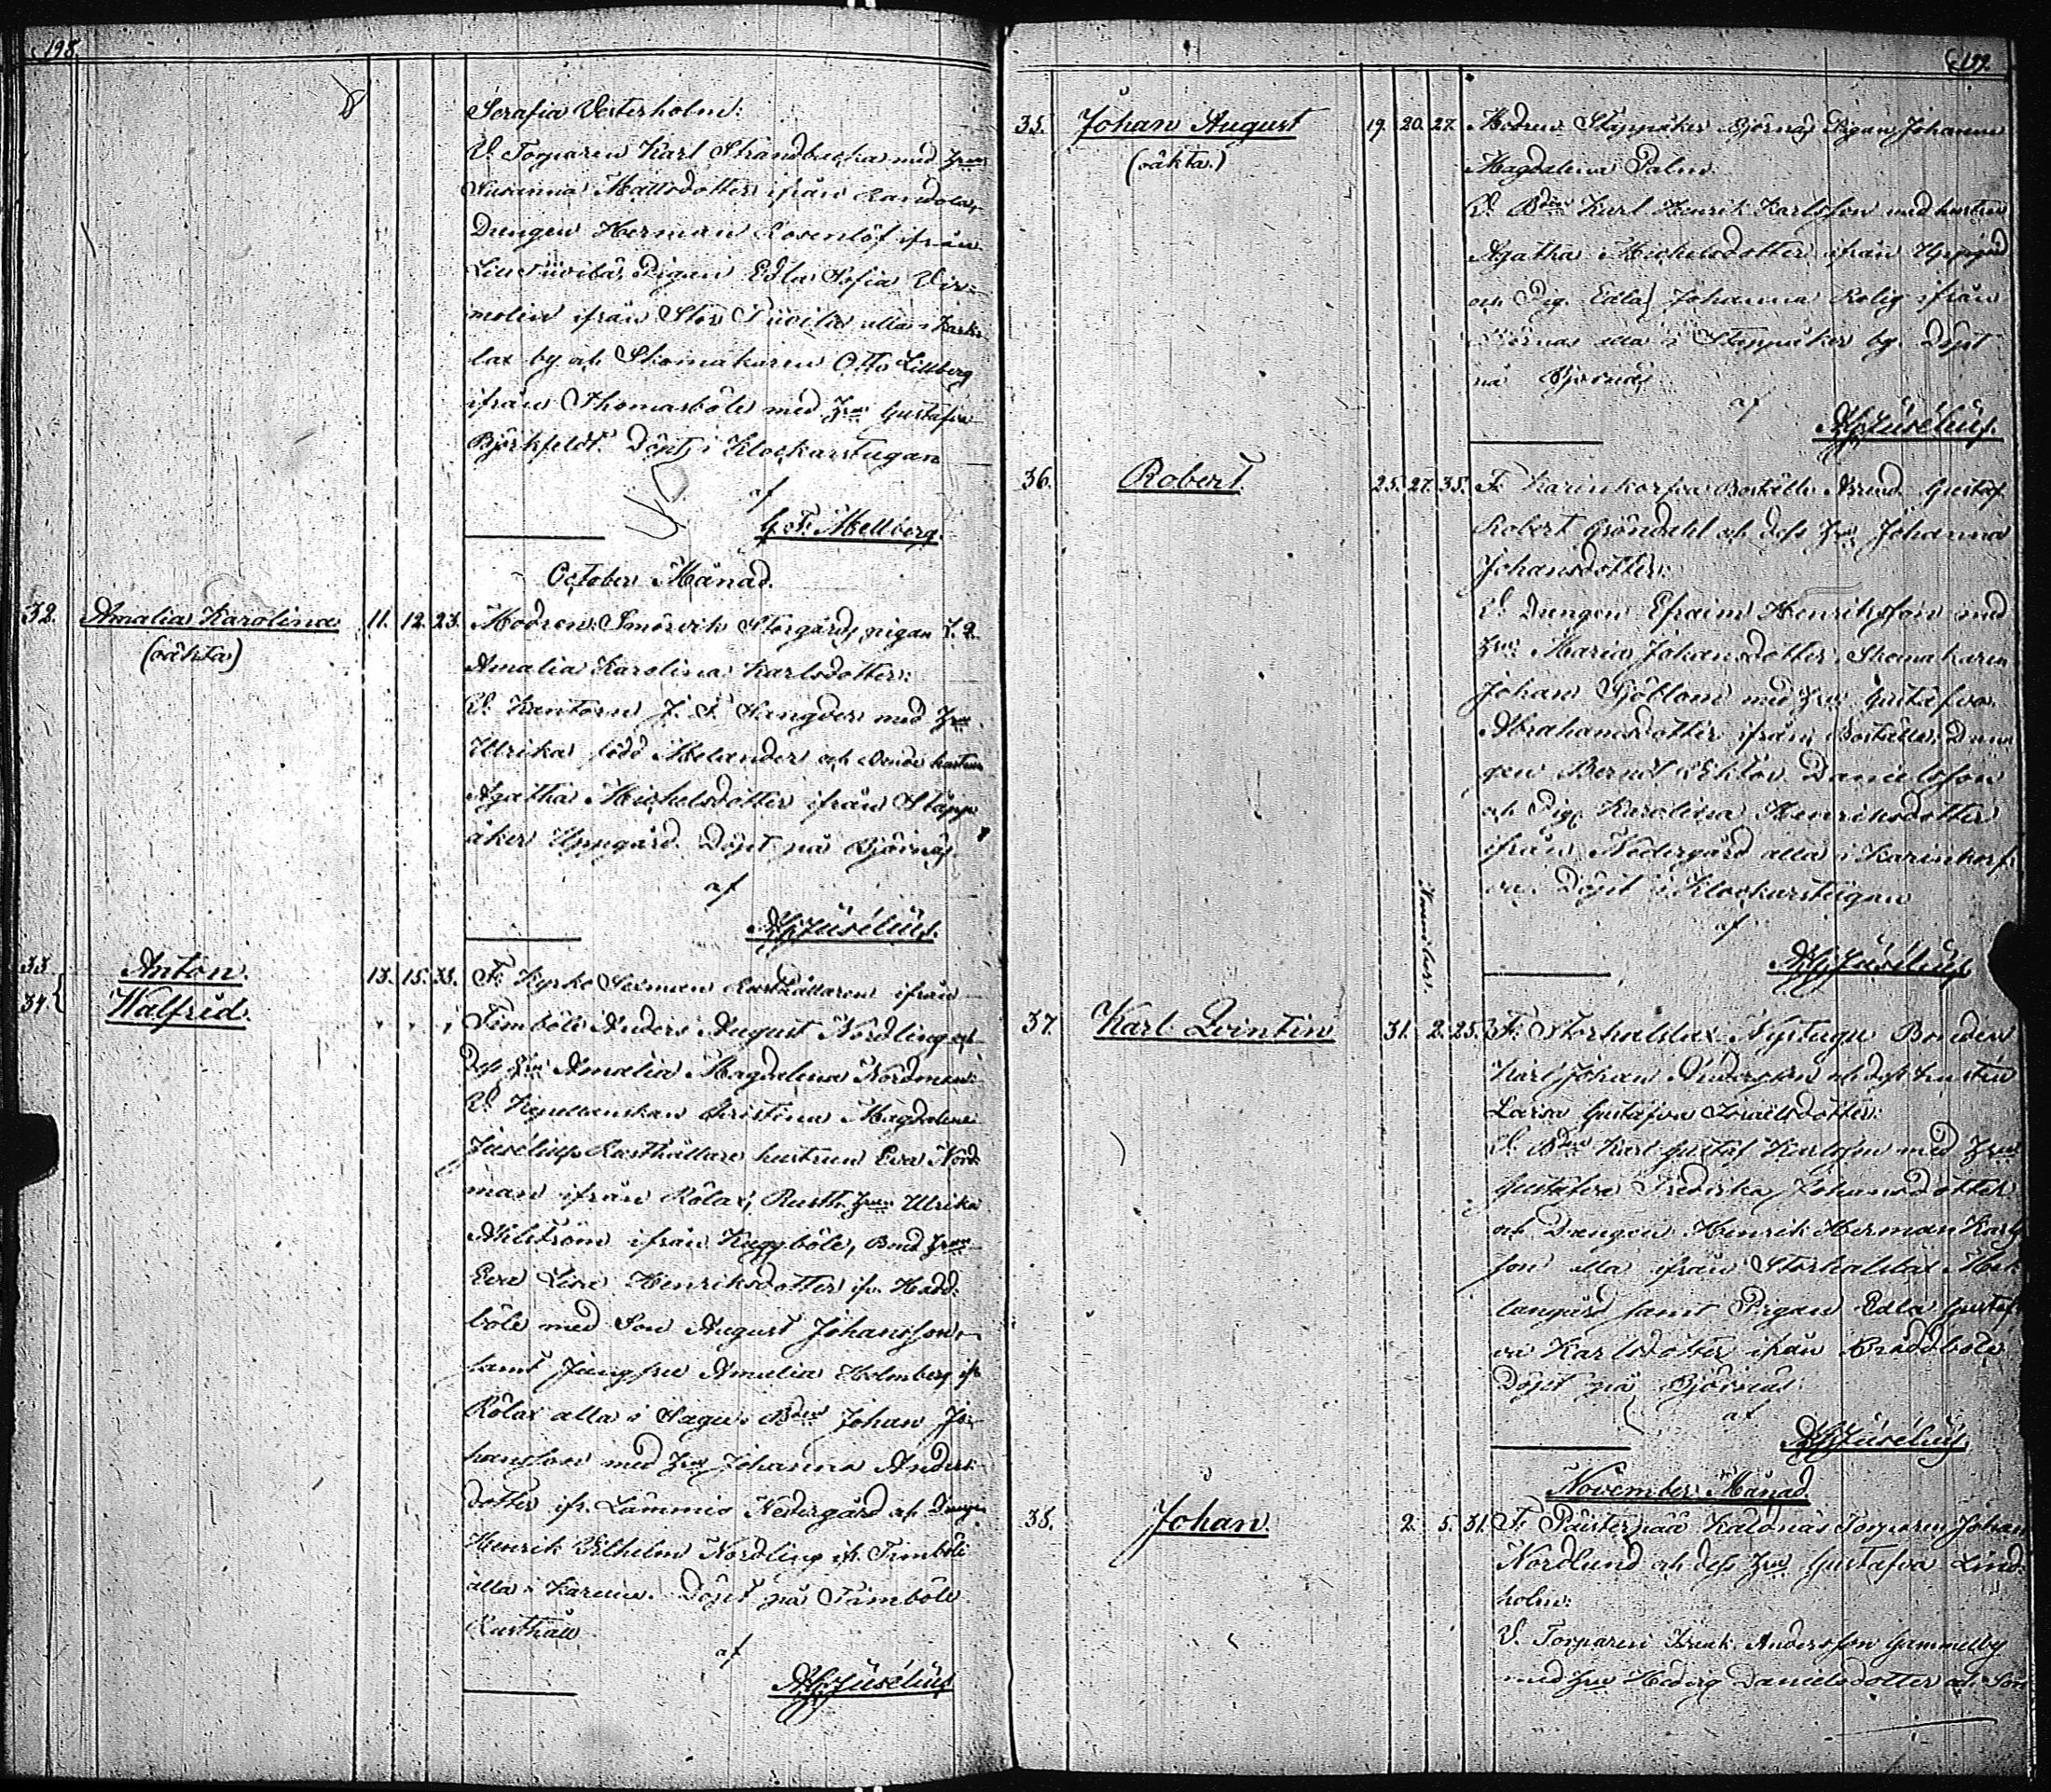 198.
Serafia Vesterholm:
V. Torparen Karl Strandbacka med Hrun
Susanna Mattsdotter ifrån Randola,
Drengen Herman Rosenlöf ifrån
Pigan Edla Sofia
ifrån Stor alla i
lax by och Skomakaren Otto Lillberg
ifrån Thomasböle med Hru Gustafva
Björkfeldt. Döpt i Klockarstugan
af
G. F. Mellberg.
October Månad.
32. Amalia Karolina 11. 12. 23. Modren: Smörvik Storgårds pigan
(oäkta) Amalia Karolina Karlsdotter:
V. Kantorn J. F. med Hru
Ulrika född Melander och Bonde hustrun
Agatha Michelsdotter ifrån Stapp
åker Uppgård. Döpt på Björnäs
af
Juselius.
33. Anton. 13. 15. 33. F. Kyrko Rusthållaren ifrån
34. Walfrid. " " " Fimböle Anders August Nordling och
dess Hru Amalia Magdalena Nordman:
V. Kapellanskan Christina Magdalena
Juselius, Rusthållare hustrun Eva Nord
man ifrån Rölax, Rusth. Hrun Ulrika
ifrån Kuggböle, Bond Hrun
Eva Lisa Henriksdotter ifr. Hadd:
böle med Son August Johansson,
samt Jungfru Amalia Holmberg ifr
Rölax alla i Sagu, Bden Johan Jo
hansson med Hru Johanna Anders
dotter ifr. Lämmis Nedergård och Dreng
Henrik Vilhelm Nordling ifr. Fimböle
alla i Karuna. Döpt på Fimböle
Rusthåll
af
Juselius
199.
35. Johan August 19. 20. 27. Modren: Stappåker Björnäs Pigan Johanna
(oäkta.) Magdalena Palm:
V. Bden Karl Henrik Karlsson med hustru
Agatha Michelsdotter ifrån Uppgård
och Pig. Edla Johanna Rolig ifrån
Björnäs alla i Stappåker by. Döpt
på Björnäs
af
Juselius.
36. Robert. 25. 27. 35. F. Karinkorfva Boställs Arrend. Gustaf
Robert Gröndahl och dess Hru Johanna
Johansdotter:
V. Drengen Efraim Henriksson med
Hru Maria Johansdotter, Skomakaren
Johan Sjöblom med Hru Gustafva
Abrahamsdotter ifrån Bostället, Dren
gen Berndt Viktor Danielsson
och Pig. Karolina Henriksdotter
ifrån Nedergård alla i Karinkorf:
va. Döpt i Klockarstugan
af
Juselius
37. Karl Qvintin 31. 2. 25. F. Storhalslax Nystugu Bonden
Karl Johan Andersson och dess hustru
Larsa Gustafva Israelsdotter:
V. Bden Karl Gustaf Karlsson med Hrun
Gustafva Fredrika Johansdotter
och Drengen Henrik Herman Karls
son alla ifrån Storhalslax
langård samt Pigan Edla Gustaf
va Karlsdotter ifrån Bräddböle
Döpt på Björnäs:
af
Juselius.
November Månad.
38. Johan 2. 5. 31. F. Päisterpää Kalonäs Torparen Johan
Nordlund och dess Hru Gustafva Lind:
holm:
V. Torparen Henrik Andersson Gammelby
med Hru Hedvig Danielsdotter och Son